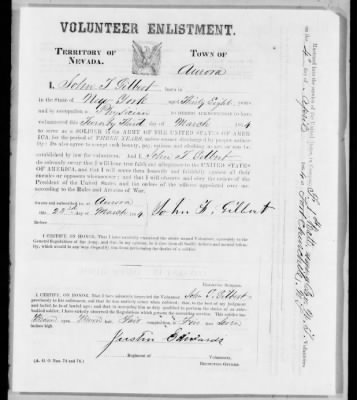 VOLUNTEER ENLISTMENT.
TERRITORY OF NEVADA.
TOWN OF
Aurora
I, John F Gilbert born in
in the State of New York aged Thirty Eight years,
and by occupation a Physician DO HEREBY ACKNOWLEDGE to have
volunteered this Twenty third day of March 1864
to serve as a SOLDIER in the ARMY OF THE UNITED STATES OF AMERICA,
for the period of THREE YEARS, unless sooner discharged by proper authority:
Do also agree to accept such bounty, pay, rations and clothing, as are, or may be,
established by law for volunteers. And I, John F Gilbert do
solemnly swear that I will bear true faith and allegiance to the UNITED STATES
OF AMERICA, and that I will serve them honestly and faithfully against all their
enemies or opposers whomsoever; and that I will observe and obey the orders of the
President of the United States, and the orders of the officers appointed over me,
according to the Rules and Articles of War.
Sworn and subscribed to, at Aurora
this 23rd day of March 1864 John F. Gilbert
BEFORE
I CERTIFY, ON HONOR, That I have carefully examined the above named Volunteer, agreeably to the
General Regulations of the Army, and that, in my opinion, he is free from all bodily defects and mental infirmity,
which would in any way disqualify him from performing the duties of a soldier.
EXAMINING SURGEON.
I CERTIFY, ON HONOR, That I have minutely inspected the Volunteer John F. Gilbert
previously to his enlistment, and that he was entirely sober when enlisted; that, to the best of my judgment
and belief, he is of lawful age; and that in accepting him as duly qualified to perform the duties of an able-
bodied soldier, I have strictly observed the Regulations which govern the recruiting service. This soldier has
eyes, hair, complexion, is Five feet
inches high.
Justin Edwards
Regiment of Volunteers,
RECRUITING OFFICER.
(A. G. O. Nos. 74 and 76.)
Mustered into the service of the United States, in Company
on the day of
Volunteers